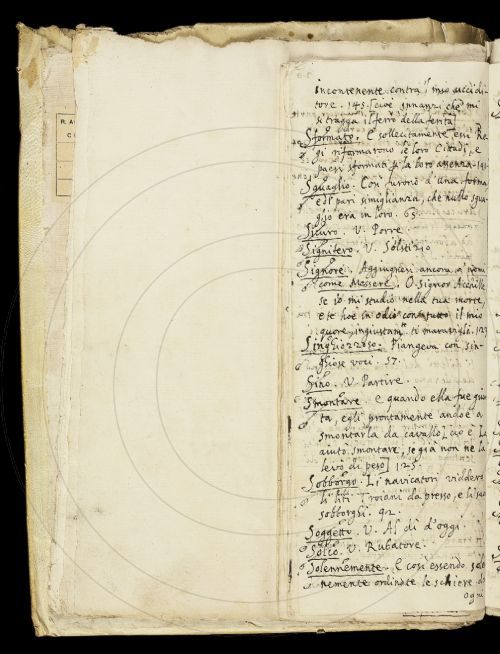 incontenente contra 'l mio uccidi-
tore. 145. [cioè innanzi che mi
si tragga il ferro della ferita]
Sformato. E sollecitamente essi Re-
gi riformarono le loro Cittadi, e
paesi sformati p la loro assenza. 141.
Sguaglio. Con furono d'una forma
e di pari simiglianza, che nullo sgua-
glio era in loro. 63.
Sicuro. V. Porre.
Signifero. V. Solstizio
Signore. Aggiugnesi ancora a' nomi
come Messere. O Signor Achille
se io mi studio nella tua morte,
e te hoe in odio con tutto il mio
quore, ingiustamte ti maravigli. 123
Singhiozzoso. Piangeva con sin-
ghiose voci. 57.
Sino. V. Partire.
Smontare. e quando ella fue giu-
ta, egli prontamente andoe a
smontarla da cavallo [cioè La
aiutò smontare, se già non ne la
levò di peso] 125.
Sobborgo. Li navicatori viddero
li liti Troiani da presso, e li suoi
sobborghi. 92.
Soggetto. V. Al dì d'oggi.
Solco. V. Rubatore.
Solennemente. E così essendo sole-
nemente ordinate le schiere di
ogni